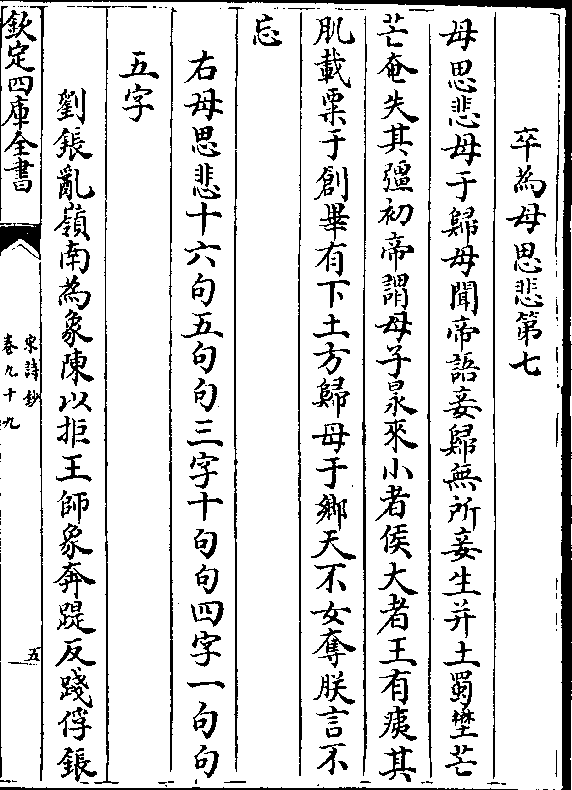 卒為母思悲第七
母思悲母于歸母聞帝語妾歸無所妾生并土蜀壄芒
芒奄失其彊初帝謂母子昶來小者侯大者王有痍其
肌載粟于創畢有下土方歸母于鄉天不女奪朕言不
忘
右母思悲十六句五句句三字十句句四字一句句
五字
劉鋹亂嶺南為象陳以拒王師象奔踶反踐俘鋹
欽定四庫全書
宋詩鈔
卷九十九
五